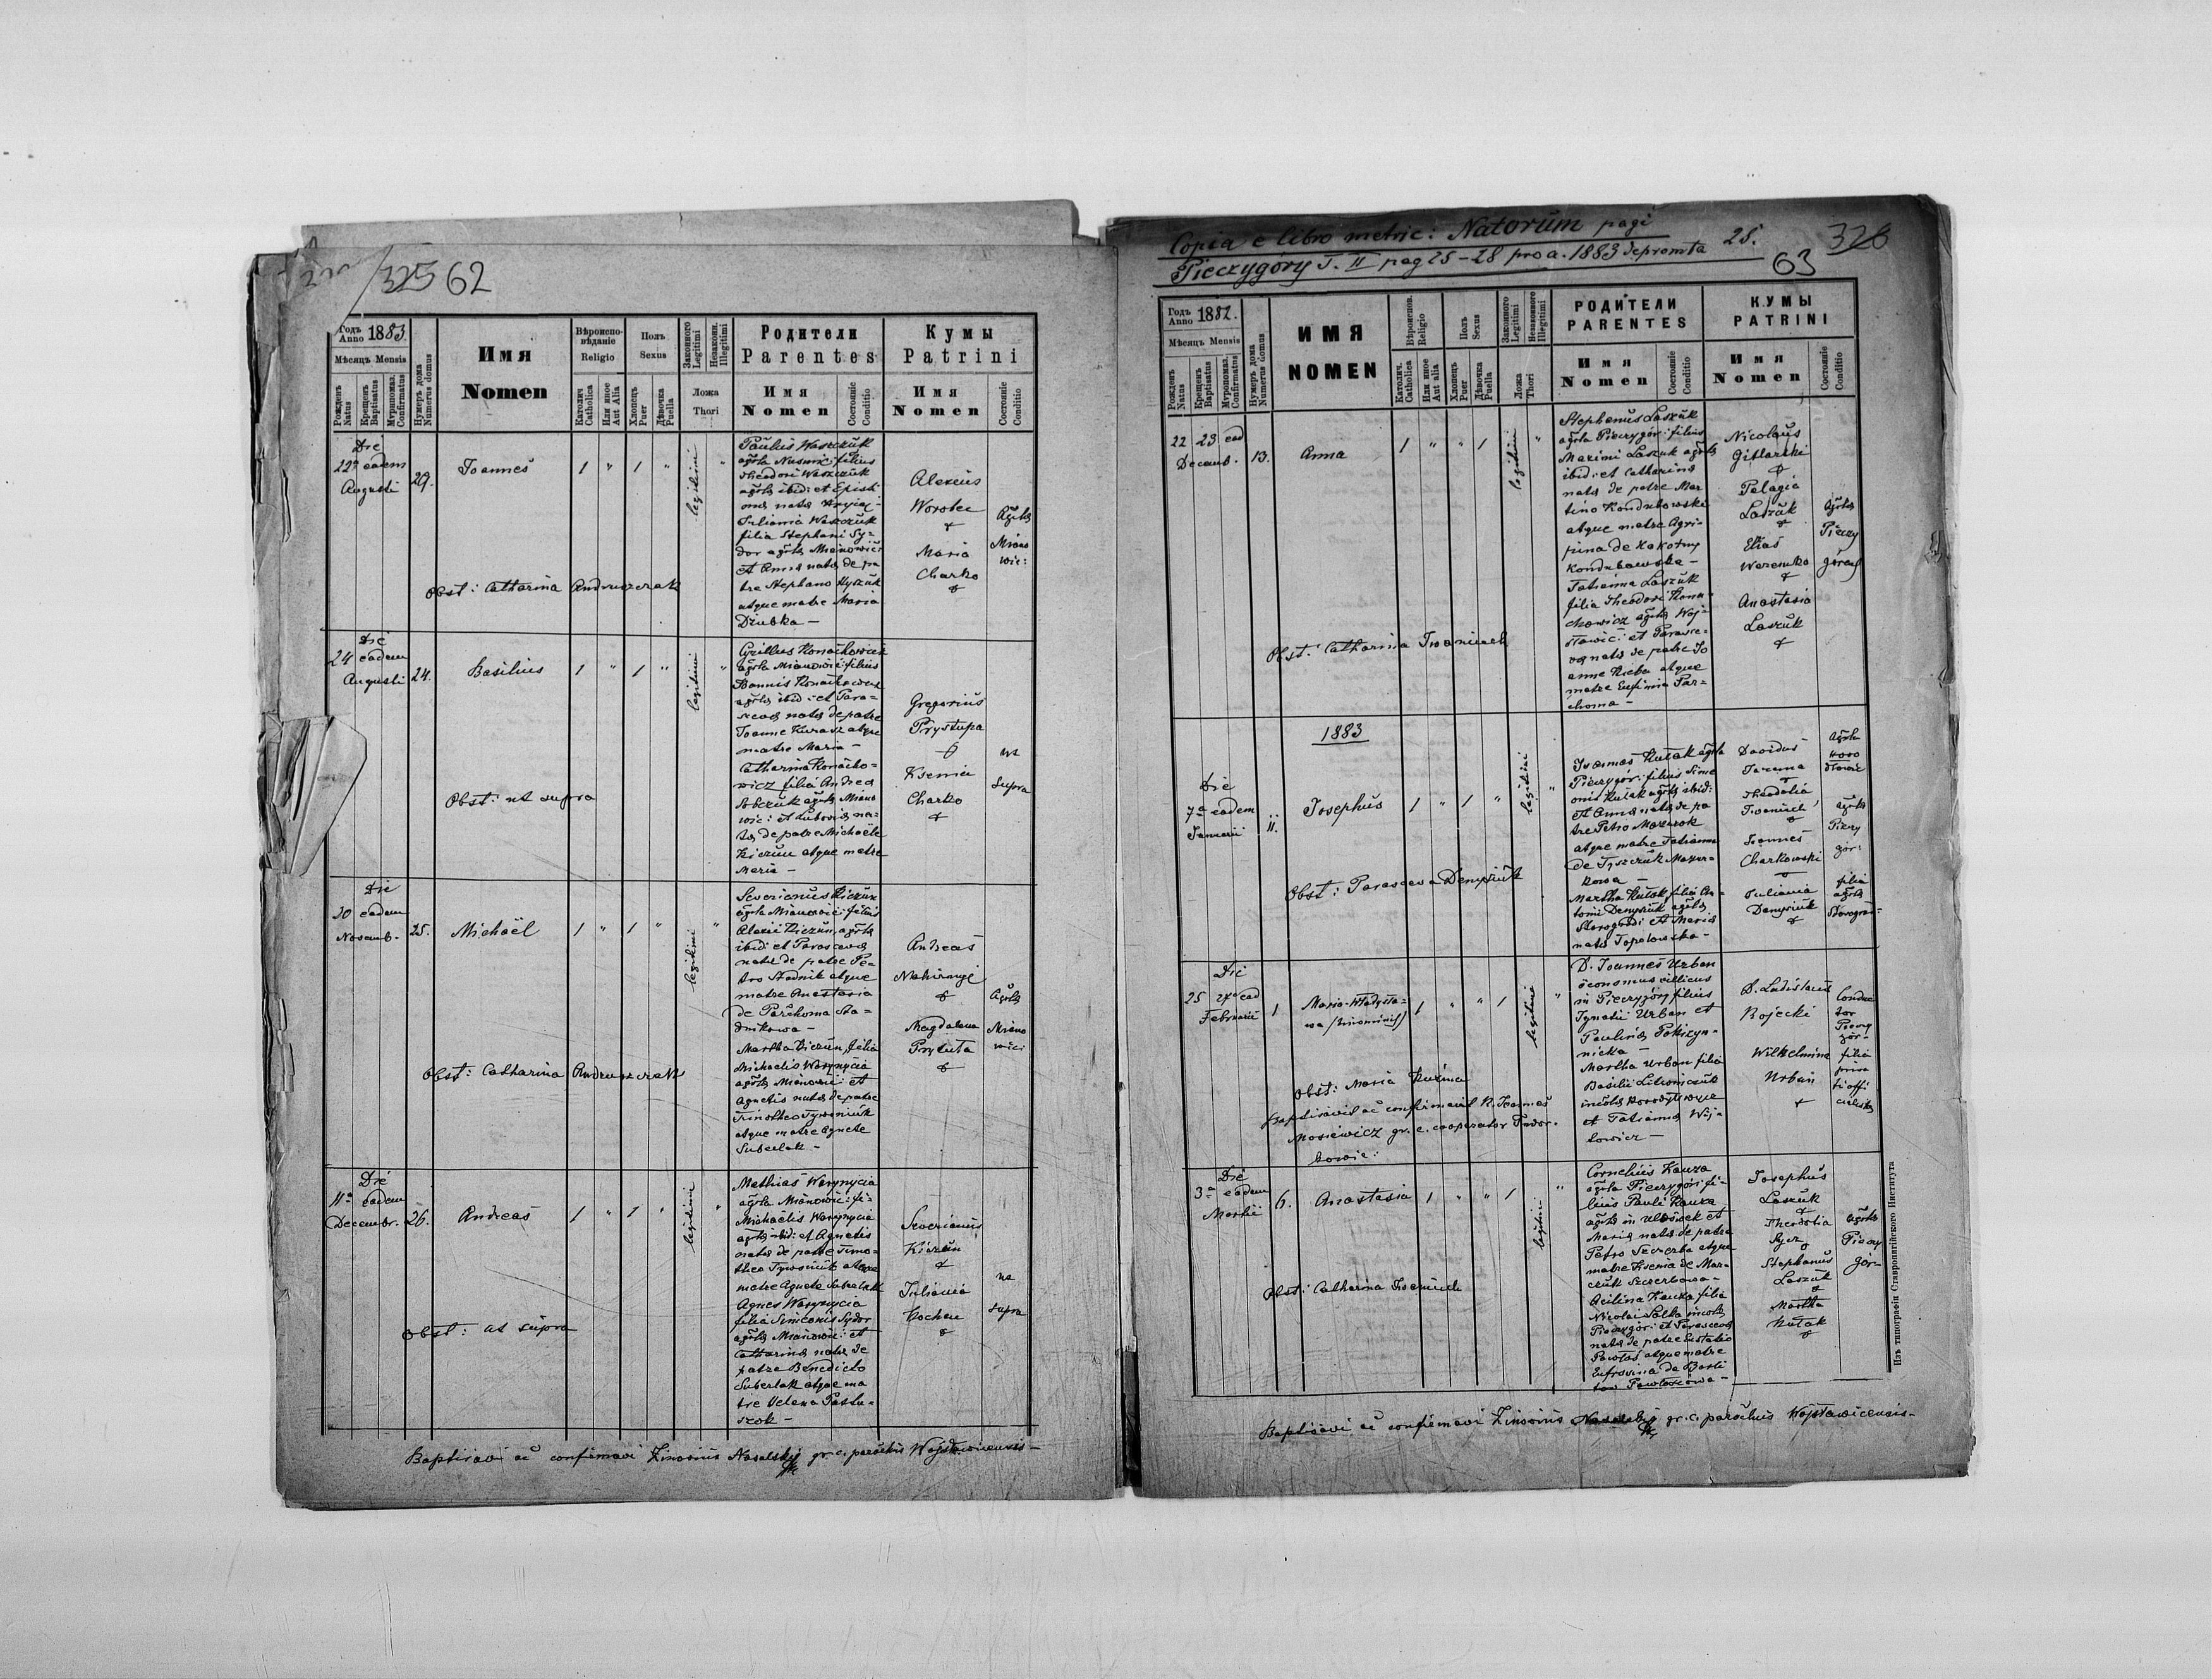 325 62
Годъ Anno 1883.
Мѣсяцъ Mensis
Рожденъ Natus
Крещенъ Baptisatus
Муропомаз. Confirmatus
Нумеръ дома Numerus domus
Имя
Nomen
Вѣроиспо-
вѣданіе
Religio
Католич Catholica
Или иное Aut Alia
Полъ
Sexus
Хлопецъ Puer
Дѣвочка Puella
Законного Legitimi
Незаконн. Illegitimi
Ложа
Thori
Родители
Parentes
Имя
Nomen
Состояніе Conditio
Кумы
Patrini
Имя
Nomen
Состояніе Conditio
Die
22a eadem
Augusti
29.
Joannes
1 " 1 "
legitimi "
Paulus Waszczuk
agrla filius
Theodori Waszczuk
agrlae ibid: et
nata
Juliania Waszczuk
filia Stephani Sy-
dor agrlae Mianowic:
et Anna nata de pa
tre Stephano
atque matre Maria
Dziubka —
Alexius
Worotec
&
Maria
Charko
&
Agrlae
Miano
wic:
Obst: Catharina Andruszczak
Die
24 eadem
Augusti
24.
Basilius
1 " 1 "
legitimi "
Cyrillus
agrla Mianowic: filius
Joannis
agrlae ibid: et Para-
scevae natae de patre
Joanne Kurasz atque
matre Maria —
Catharina
wicz filia Andreae
Sobczuk agrlae Miano
wic: et na-
tae de patre Michaële
Kiczun atque matre
Maria —
Gregorius
Prystupa
&
Ksenia
Charko
&
ut
supra
Obst: ut supra
Die
30 eadem
Novemb.
25.
Michaël
1 " 1 "
legitimi "
Severianus Kiczun
agrla Mianowic: filius
Alexii Kiczun, agrlae
ibid: et Parascevae
natae de patre Pe-
tro Stadnik atque
matre Anastasia
de Parchoma Sta-
dnikowa —
Martha Kiczun, filia
Michaelis Warynycia
agrlae Mianowic: et
Agnetis natae de patre
Timotheo
atque matre Agnete
Suberlak —
Andreas
&
Magdalena
Prytuta
&
Agrlae
Miano
wic:
Obst: Catharina Andruszczak
Die
11a eadem
Decembr.
26.
Andreas
1 " 1 "
legitimi "
Mathias Warynycia
agrla Mianowic: fi-
Michaëlis Warynycia
agrlae ibid: et Agnetis
natae de patre Timo-
theo atque
matre Agnete Suberlak
Agnes Warynycia
filia Simeonis Sydor
agrlae Mianowic: et
Catharina natae de
patre Benedicto
Suberlak atque ma
tre Helena Pastu-
szok —
Severianus
Kiczun
&
Juliania
Kochan
&
ut
supra
Obst: ut supra
Baptisavi ac confirmavi Zinovius Nasalskyj gr. c. parochus Wojsławicensis —
Copia e libro metric: Natorum pagi
Pieczygóry T. II pag 25-28 pro a. 1883 depromta
25.
326
63
Годъ Anno 1882.
Мѣсяцъ Mensis
Рожденъ Natus
Крещенъ Baptisatus
Муропомаз. Confirmatus
Нумеръ дома Numerus domus
ИМЯ
NOMEN
Вѣроиспов. Religio
Католич. Catholica
Или иное Aut alia
Полъ Sexus
Хлопецъ Puer
Дѣвочка Puella
Законного Legitimi
Незаконного Illegitimi
Ложа Thori
РОДИТЕЛИ
PARENTES
Имя
Nomen
Состояніе Conditio
КУМЫ
PATRINI
Имя
Nomen
Состояніе Conditio
22 23 ead
Decemb.
13.
Anna
1 " " 1
legitimi "
Stephanus Laszuk
agrla Pieczygór: filius
Maximi Laszuk agrlae
ibid: et Catharina
nata de patre Mar
tino Kondubowski
atque matre Agri-
pina de
Kondubowska —
Tatianna Laszuk
filia Theodori Kona-
chowicz agrlae Woj-
sławic: et Parasce-
vae natae de patre Jo
anne atque
matre Eufimia Par-
choma —
Nicolaus
Gitlarski
&
Pelagia
Laszuk
&
Elias
Weremko
&
Anastasia
Laszuk
&
Agrlae
Pieczy
góren
Obst: Catharina Iwaniuch
1883
Die
7a eadem
Januarii
11.
Josephus
1 " 1 "
legitimi "
Joannes Kutak agrla
Pieczygór: filius Sime
onis Kutak agrlae ibid:
et Anna nata de pa
tre Petro Mazurok
atque matre Tatianna
de Tyszczuk Mazur-
kowa —
Martha Kutak filia An
tonii Denysiuk agrlae
Starogrodi et Maria
nata Topolowska —
Davidus
&
Theodosia
Iwaniuch
&
Joannes
Charkowski
Juliania
Denysiuk
&
Agrla
Agrlae
Pieczy
gór:
filia
agrlae
Starogro-
Obst: Parasceva Denysiuk
Die
25 27a ead
Februarii
1
Maria-Władysła-
wa (binominis)
1 " " 1
legitimi "
D. Joannes Urban
oeconomus villicus
in Pieczygóry filius
Ignatii Urban et
Paulina
nicka —
Martha Urban filia
Basilii Litwinczuk
incolae
et Tatianna Woj-
towicz —
D. Ladislaus
Bojecki
Wilhelmina
Urban
&
Conduc
tor
Pieczy
gór-
filia
priva
ti offi
cialis
Obst: Maria Kuzma
Baptisavit ac confirmavit R. Joannes
Mosiewicz gr. c. cooperator
Die
3a eadem
Martii
6.
Anastasia
1 " " 1
legitimi "
Cornelius Kauza
agrla Pieczygór: fi-
lius Pauli Kauza
agrlae in Ulwówek et
Maria nata de patre
Petro Szczerba atque
matre Ksenia de Mar-
czuk Szczerbowa —
Acilina Kauza filia
Nicolai Salka incolae
Pieczygór: et Parascevae
natae de patre Eustatio
Pawłoś atque matre
Eufrosina de Barti
Josephus
Laszuk
&
Theodosia
&
Stephanus
Laszuk
&
Martha
Kutak
&
Agrlae
Pieczy
gór-
Obst: Catharina Iwaniuch
Baptisavi ac confirmavi Zinovius Nasalskyj gr. c. parochus Wojsławicensis —
Изъ типографіи Ставропигійского Института